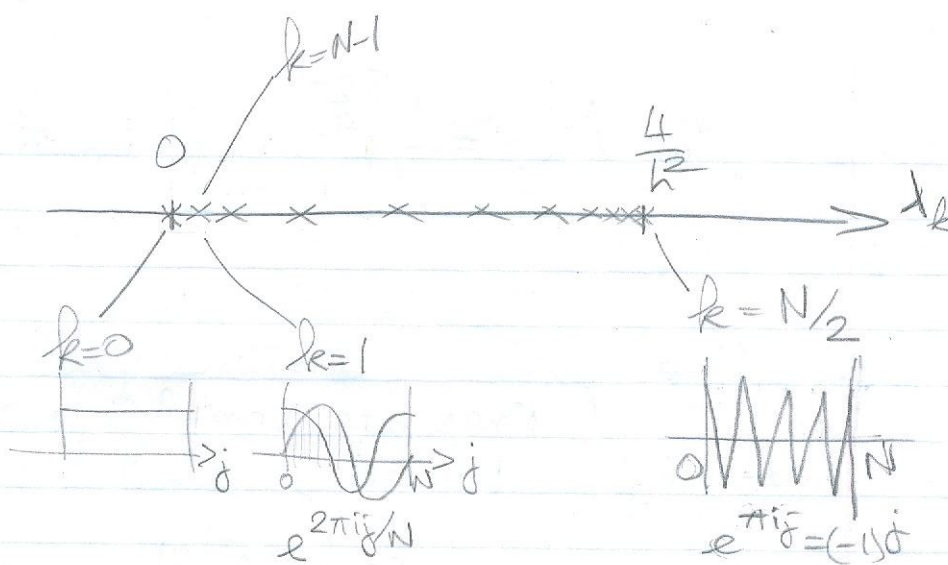 k=N-1
0
4/h²
λ_k
k=0
k=1
k = N/2
j
0 N j
0 N
e^{2πij/N}
e^{πij} = (-1)^j